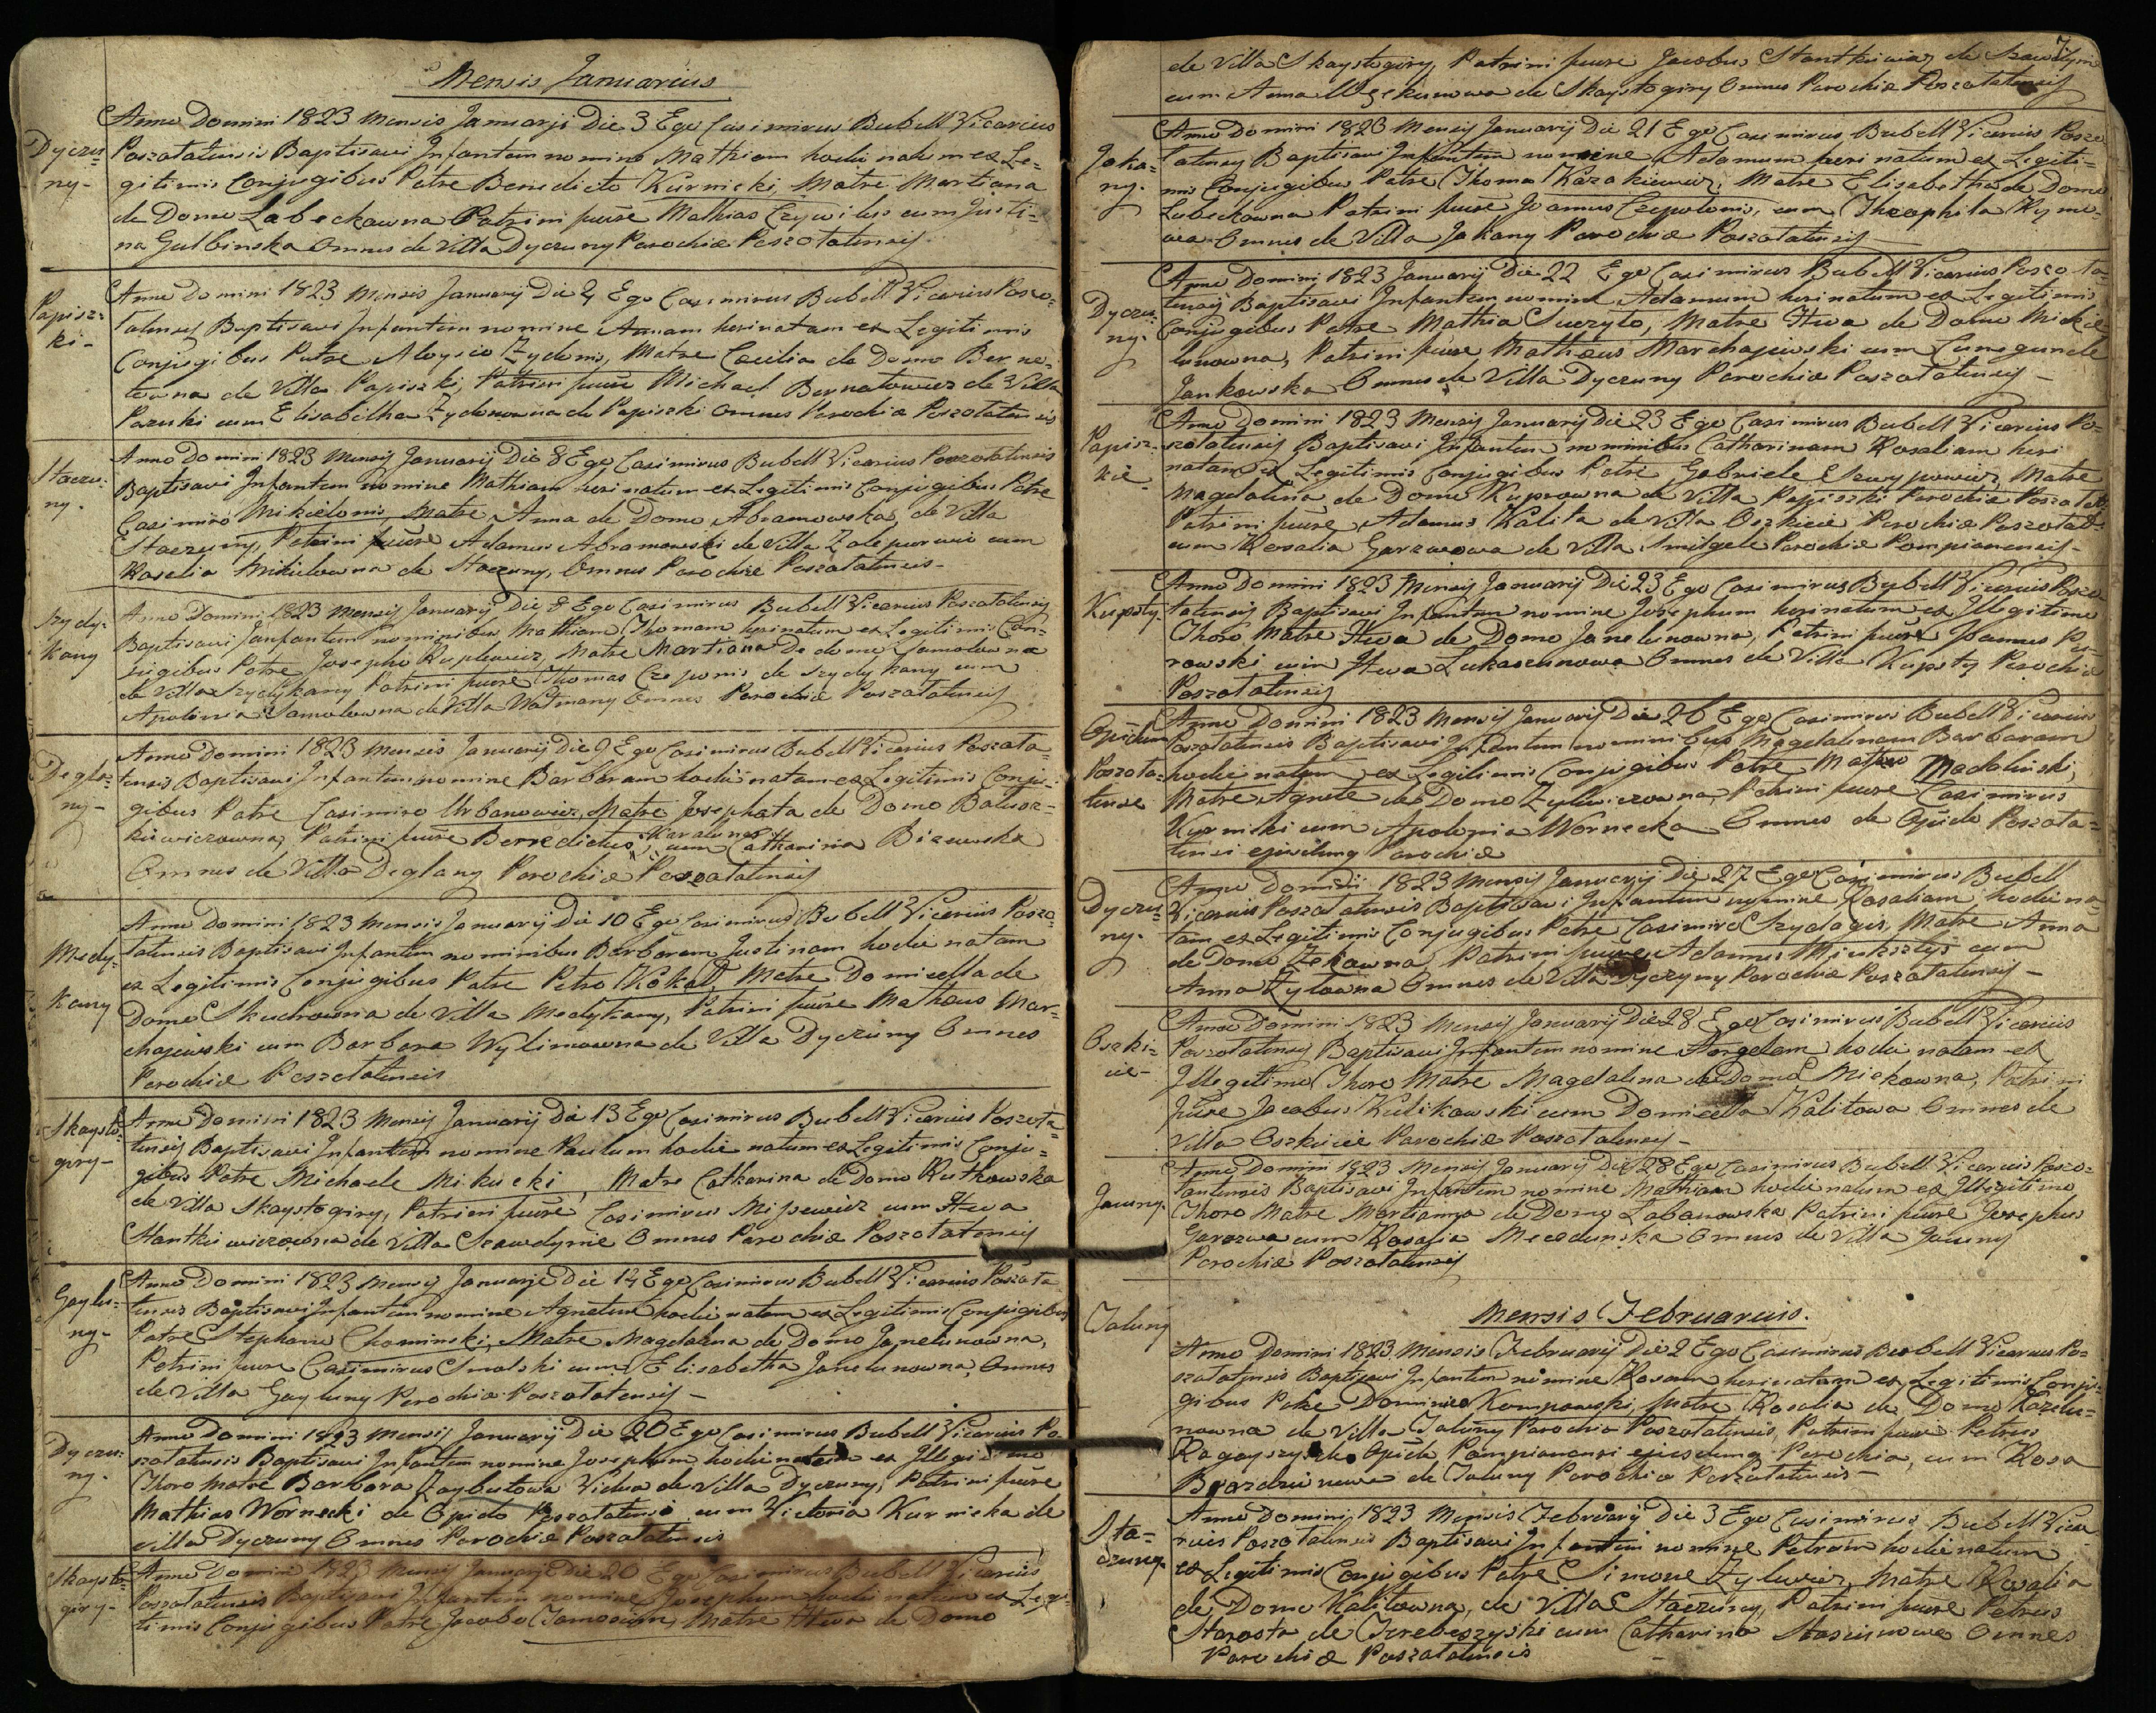 Mensis Januarius
Dyczu=
ny-
Anno Domini 1823 Mensis Januarji Die 3 Ego Casimirus Bubell Vicarius
Poszatatensis Baptisavi Infantem nomine Mathiam hodie natum ex Le=
gitimis Conjugibus Patre Benedicto Kurnicki, Matre Martiana
de Domo Labeckowna Patrini fuere Mathias cum Justi=
na Gulbinska Omnes de Villa Dyczuny Parochiæ Poszatatensis.
Papisz=
ki-
Anno Domini 1823 Mensis Januarij Die 4 Ego Casimirus Bubell Vicarius Posza=
tatensis Baptisavi Infantem nomine Annam heri natam ex Legitimis
Conjugibus Patre Aloysio Zydonis, Matre Cæcilia de Domo Berna=
towna de Villa Papiszki, Patrini fuere Michael Bernatowicz de Villa
cum Elisabetha Zydonowna de Papiszki Omnes Parochiæ Poszatatensis
Staczu=
ny.
Anno Domini 1823 Mensis Januarij Die 8 Ego Casimirus Bubell Vicarius Poszatatensis
Baptisavi Infantem nomine Mathiam heri natum ex Legitimis Conjugibus Patre
Casimiro Mikielonis, Matre Anna de Domo Abramowska, de Villa
Staczuny, Patrini fuere Adamus Abramowski de Villa cum
Rosalia Mikielowna de Staczuny, Omnes Parochiæ Poszatatensis-
Szydy=
kany
Anno Domini 1823 Mensis Januarij Die 8 Ego Casimirus Bubell Vicarius Poszatatensis
Baptisavi Infantem nominibus Mathiam Thomam heri natum ex Legitimis Con=
jugibus Patre Josepho Kuplewicz, Matre Martiana De domo Samolowna
de Villa Szydykany Patrini fuere Thomas Czeponis de Szydykany cum
Apolonia Samolowna de Villa Watmany Omnes Parochiæ Poszatatensis
Degla=
ny-
Anno Domini 1823 Mensis Januarij Die 9 Ego Casimirus Bubell Vicarius Poszata=
tensis Baptisavi Infantem nomine Barbaram hodie natam ex Legitimis Conju=
gibus Patre Casimiro Urbanowicz, Matre Josephata de Domo Batusz=
kiewiczowna, Patrini fuere Benedictus Karalunas cum Catharina
Omnes de Villa Deglany Parochiæ Poszatatensis
Medy=
kany
Anno Domini 1823 Mensis Januarij Die 10 Ego Casimirus Bubell Vicarius Posza=
tatensis Baptisavi Infantem nominibus Barbaram Justinam hodie natam
ex Legitimis Conjugibus Patre Petro Kokal, Matre Domicella de
Domo Skudrowna de Villa Medykany, Patrini fuere Matheus Mar=
chajewski cum Barbara Wylimowna de Villa Dyczuny Omnes
Parochiæ Poszatatensis
Skaysto=
giry-
Anno Domini 1823 Mensis Januarij Die 13 Ego Casimirus Bubell Vicarius Poszata=
tensis Baptisavi Infantem nomine Paulum hodie natum ex Legitimis Conju=
gibus Patre Michaele Mikucki, Matre Catharina de Domo Rutkowska
de Villa Skaystogiry, Patrini fuere Casimirus Misiewicz cum Ewa
Stantkiewiczowna de Villa Szawdynie Omnes Parochiæ Poszatatensis
Gaylu=
ny-
Anno Domini 1823 Mensis Januarji Die 14 Ego Casimirus Bubell Vicarius Poszata
tensis Baptisavi Infantem nomine Agnetem hodie natam ex Legitimis Conjugibus
Patre Stephano Chominski, Matre Magdalena de Domo Janelunowna,
Patrini fuere Casimirus Smolski cum Elisabetha Janelunowna, Omnes
de Villa Gayluny Parochiæ Poszatatensis-
Dyczu=
ny.
Anno Domini 1823 Mensis Januarij Die 20 Ego Casimirus Bubell Vicarius Po=
szatatensis Baptisavi Infantem nomine Josephum hodie natum ex Illegitimo
Thoro Matre Barbara Vidua de Villa Dyczuny, Patrini fuere
Mathias Wornecki de Opido Poszatatensi cum Victoria Kurnicka de
Villa Dyczuny Omnes Parochiæ Poszatatensis
Skaysto=
giry-
Anno Domini 1823 Mensis Januarji Die 20 Ego Casimirus Bubell Vicarius
Poszatatensis Baptisavi Infantem nomine Josephum hodie natum ex Legi=
timis Conjugibus Patre Jacobo Matre Ewa de Domo
7.
de Villa Skaystogiry, Patrini fuere Jacobus Stantkiewicz de Szawdynie
cum Anna de Skaystogiry Omnes Parochiæ Poszatatensis
Jaka=
ny.
Anno Domini 1823 Mensis Januarij Die 21 Ego Casimirus Bubell Vicarius Posza
tatensis Baptisavi Infantem nomine Adamum heri natum ex Legiti=
mis Conjugibus Patre Thoma Kozakiewicz, Matre Elisabetha de Domo
Labeckowna Patrini fuere Joannes cum Theophila Ryme=
wa Omnes de Villa Jakany Parochiæ Poszatatensis-
Dyczu=
ny.
Anno Domini 1823 Januarij Die 22 Ego Casimirus Bubell Vicarius Poszata=
tensis Baptisavi Infantem nomine Adamum heri natum ex Legitimis
Conjugibus Patre Mathia Suszyto, Matre Ewa de Domo Mickie
lunowna, Patrini fuere Matheus Marchajewski cum Cunegunde
Jankowska Omnes de Villa Dyczuny Parochiæ Poszatatensis-
Papisz=
kie-
Anno Domini 1823 Mensis Januarij Die 23 Ego Casimirus Bubell Vicarius Po=
szatatensis Baptisavi Infantem nominibus Catharinam Rosaliam heri
natam ex Legitimis Conjugibus Patre Gabriele Matre
Magdalena de Domo Kuprowna de Villa Papiszki Parochiæ Poszatat:
Patrini fuere Adamus Kalita de Villa Oszkicie Parochiæ Poszatat:
cum Rosalia Garszwowa de Villa Smilgele Parochiæ Pompianensis-
Kupsty.
Anno Domini 1823 Mensis Januarij Die 23 Ego Casimirus Bubell Vicarius Posza=
tatensis Baptisavi Infantem nomine Josephum heri natum ex Illegitimo
Thoro Matre Ewa de Domo Janelunowna, Patrini fuere Joannes Pu=
rowski cum Ewa Lukaszunowa Omnes de Villa Kupsty Parochiæ
Poszatatensis
Opidum
Poszata=
tense
Anno Domini 1823 Mensis Januarij Die 26 Ego Casimirus Bubell Vicarius
Poszatatensis Baptisavi Infantem nominibus Magdalenam Barbaram
hodie natam ex Legitimis Conjugibus Patre Matheo Madalinski,
Matre Agnete de Domo Zylewiczowna, Patrini fuere Casimirus
Kurnicki cum Apolonia Wornecka Omnes de Opido Poszata=
tensi ejusdemq Parochiæ
Dyczu=
ny.
Anno Domini 1823 Mensis Januarij Die 27 Ego Casimirus Bubell
Vicarius Poszatatensis Baptisavi Infantem nomine Rosaliam hodie na=
tam ex Legitimis Conjugibus Patre Casimiro Szydagis, Matre Anna
de Domo Patrini fuere Adamus cum
Anna Zylowna Omnes de Villa Dyczyny Parochiæ Poszatatensis-
Oszki=
cie-
Anno Domini 1823 Mensis Januarij Die 28 Ego Casimirus Bubell Vicarius
Poszatatensis Baptisavi Infantem nomine Angelam hodie natam ex
Illegitimo Thoro Matre Magdalena de Domo Mickowna, Patrini
fuere Jacobus Kulikowski cum Domicella Kalitowa Omnes de
Villa Oszkicie Parochiæ Poszatatensis-
Jauny.
Anno Domini 1823 Mensis Januarij Die 28 Ego Casimirus Bubell Vicarius Posza=
tantensis Baptisavi Infantem nomine Mathiam hodie natum ex Illegitimo
Thoro Matre Martianna de Domo Labanowska Patrini fuere Josephus
Garszwa cum Rosalia Omnes de Villa Jauny
Parochiæ Poszatatensis
Mensis Februarius.
Taluny
Anno Domini 1823 Mensis Februarij Die 2 Ego Casimirus Bubell Vicarius Po=
szatatensis Baptisavi Infantem nomine Rosam heri natam ex Legitimis Conju=
gibus Patre Dominico Kompowski, Matre Rosalia de Domo Kozelu=
nowna de Villa Taluny Parochiæ Poszatatensis, Patrini fuere Petrus
de Opido Pompianensi ejusdemq Parochia, cum Rosa
de Taluny Parochiæ Poszatatensis-
Sta=
czuny.
Anno Domini 1823 Mensis Februarij Die 3 Ego Casimirus Bubell Vica=
rius Poszatatensis Baptisavi Infantem nomine Petrum hodie natum
ex Legitimis Conjugibus Patre Simone Zylewicz, Matre Rosalia
de Domo Kalitowna, de Villa Staczuny, Patrini fuere Petrus
Starosta de cum Catharina Omnes
Parochiæ Poszatatensis